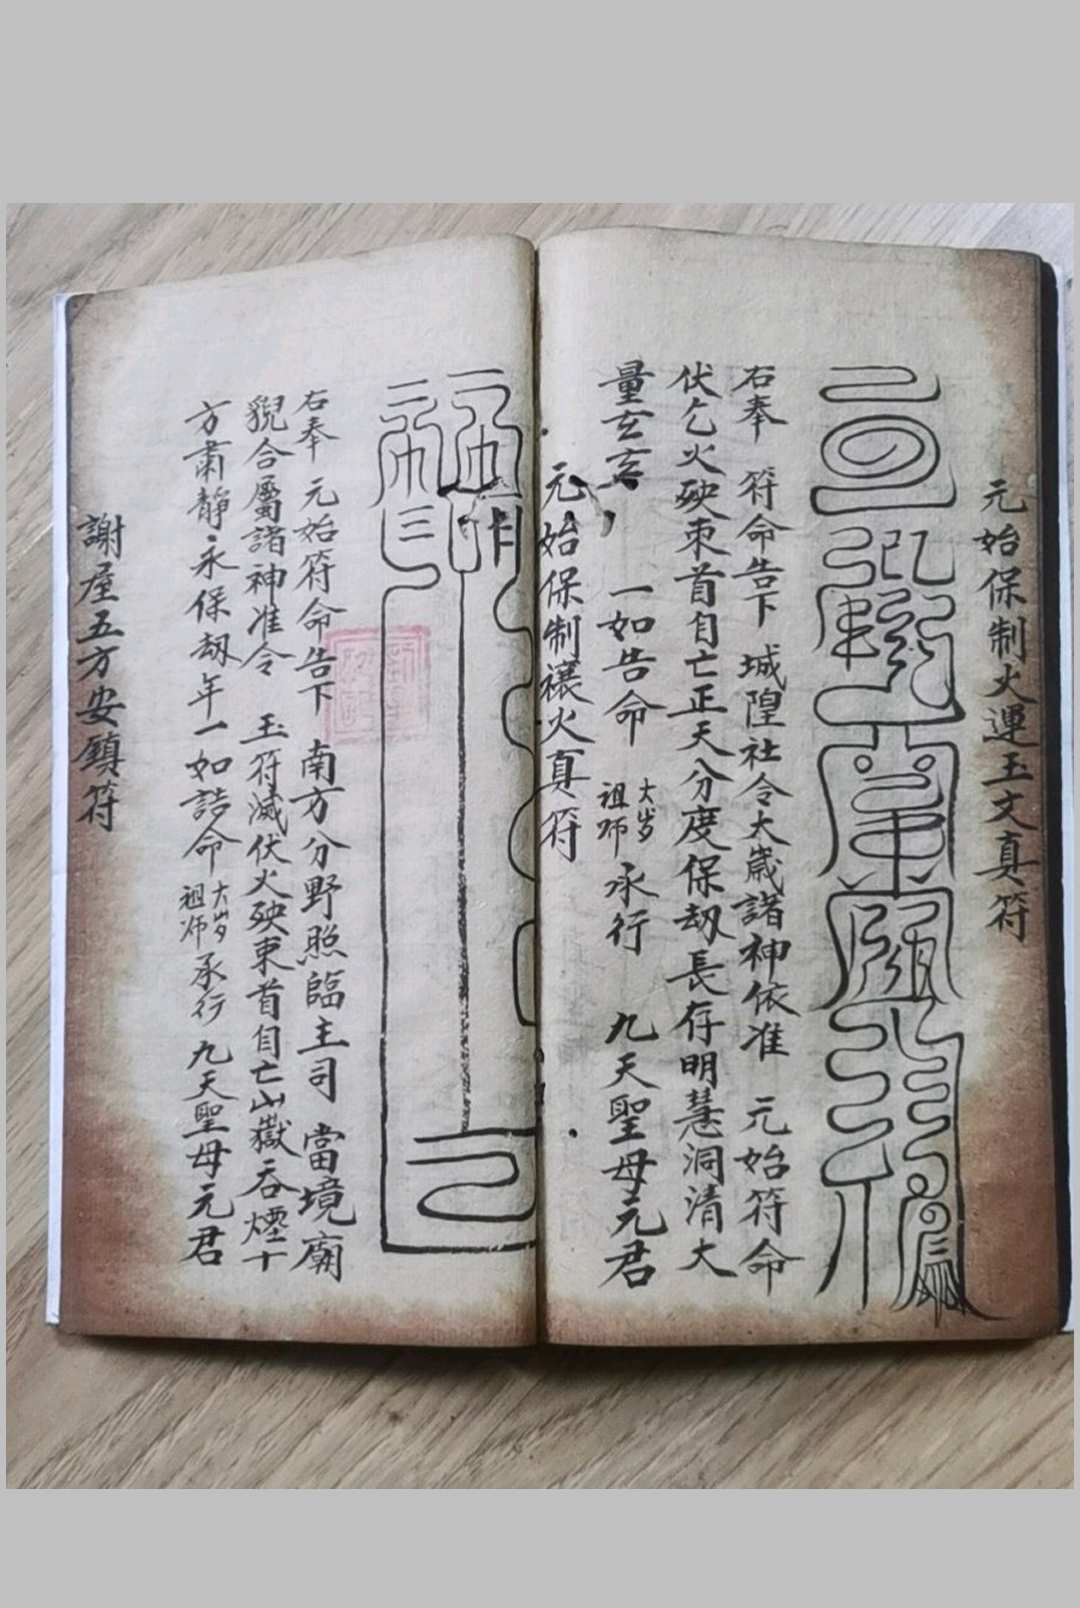 元始保制火運玉文真符
右奉　符命告下　城隍社令大歲諸神依准　元始符命
伏乞火殃束首自亡正天分度保劫長存明慧洞清大
量玄玄　一如告命　大岁祖师　承行　九天聖母元君
元始保制禳火真符
右奉　元始符命告下　南方分野照臨主司　當境廟
貎合屬諸神准令　玉符滅伏火殃束首自亡山嶽吞煙十
方肅靜永保劫年一如誥命　大岁祖师　承行　九天聖母元君
謝屋五方安鎮符